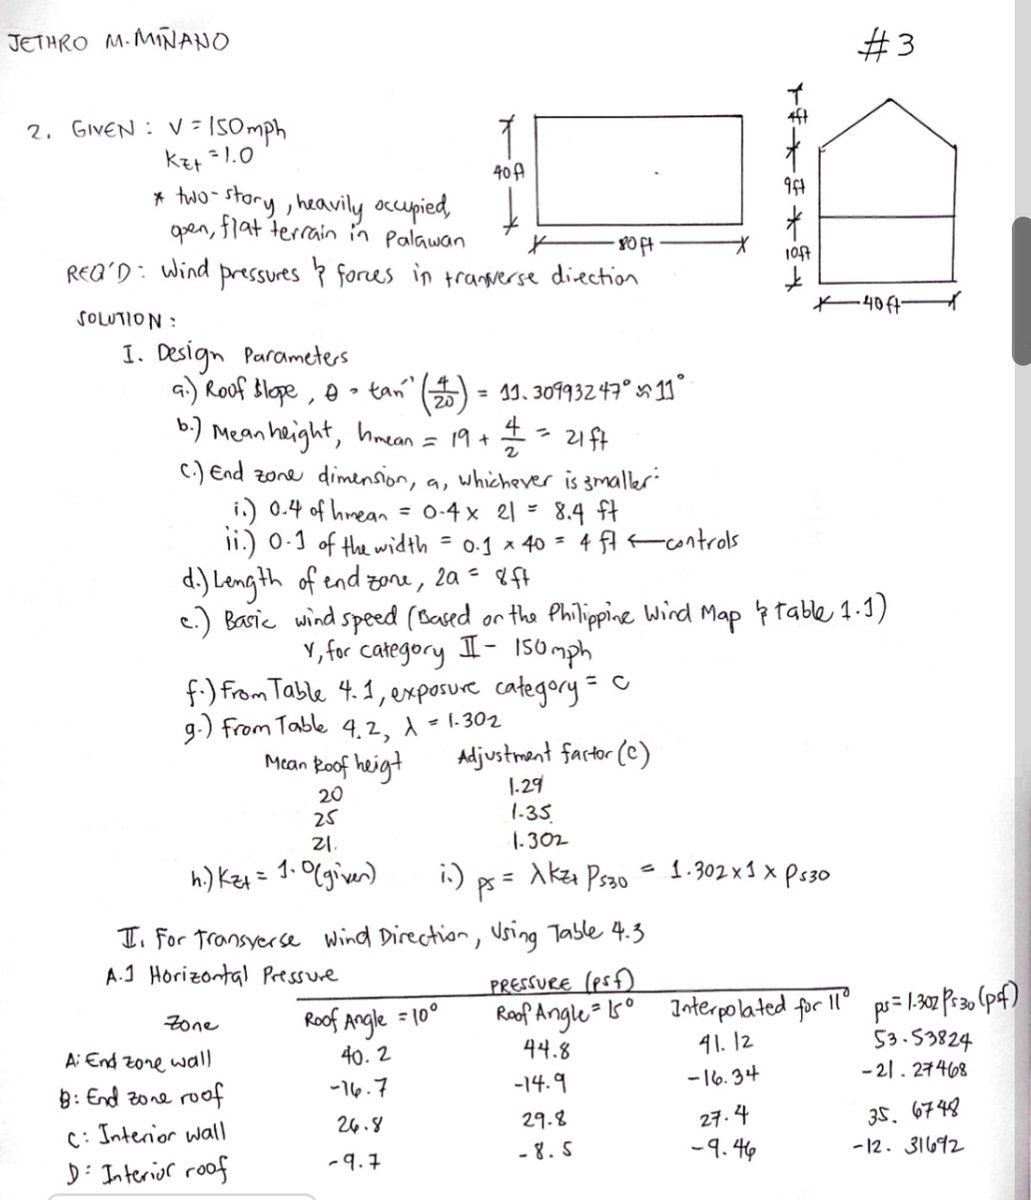 JETHRO M. MIÑANO
#3
2. GIVEN : V = 150mph
Kzt = 1.0
* two-story, heavily occupied,
open, flat terrain in Palawan
40ft
80ft
4ft
9ft
10ft
40ft
REQ'D : Wind pressures & forces in transverse direction
SOLUTION :
I. Design Parameters
a.) Roof Slope, θ = tan⁻¹ (4/20) = 11.30993247° ≈ 11°
b.) Mean height, hmean = 19 + 4/2 = 21 ft
c.) End zone dimension, a, whichever is smaller:
i.) 0.4 of hmean = 0.4 x 21 = 8.4 ft
ii.) 0.1 of the width = 0.1 x 40 = 4 ft ← controls
d.) Length of end zone, 2a = 8ft
e.) Basic wind speed (Based on the Philippine Wind Map & table 1.1)
V, for category II - 150mph
f.) From Table 4.1, exposure category = C
g.) From Table 4.2, λ = 1.302
Mean Roof heigt Adjustment factor (C)
20 1.29
25 1.35
21. 1.302
h.) Kzt = 1.0 (given) i.) ps = λ Kzt Ps30 = 1.302 x 1 x Ps30
II. For Transverse Wind Direction, Using Table 4.3
A.1 Horizontal Pressure
PRESSURE (psf)
Zone Roof Angle = 10° Roof Angle = 15° Interpolated for 11° ps = 1.302 Ps30 (psf)
A: End zone wall 40.2 44.8 41.12 53.53824
B: End zone roof -16.7 -14.9 -16.34 -21.27468
C: Interior wall 26.8 29.8 27.4 35.6748
D: Interior roof -9.7 -8.5 -9.46 -12.31692